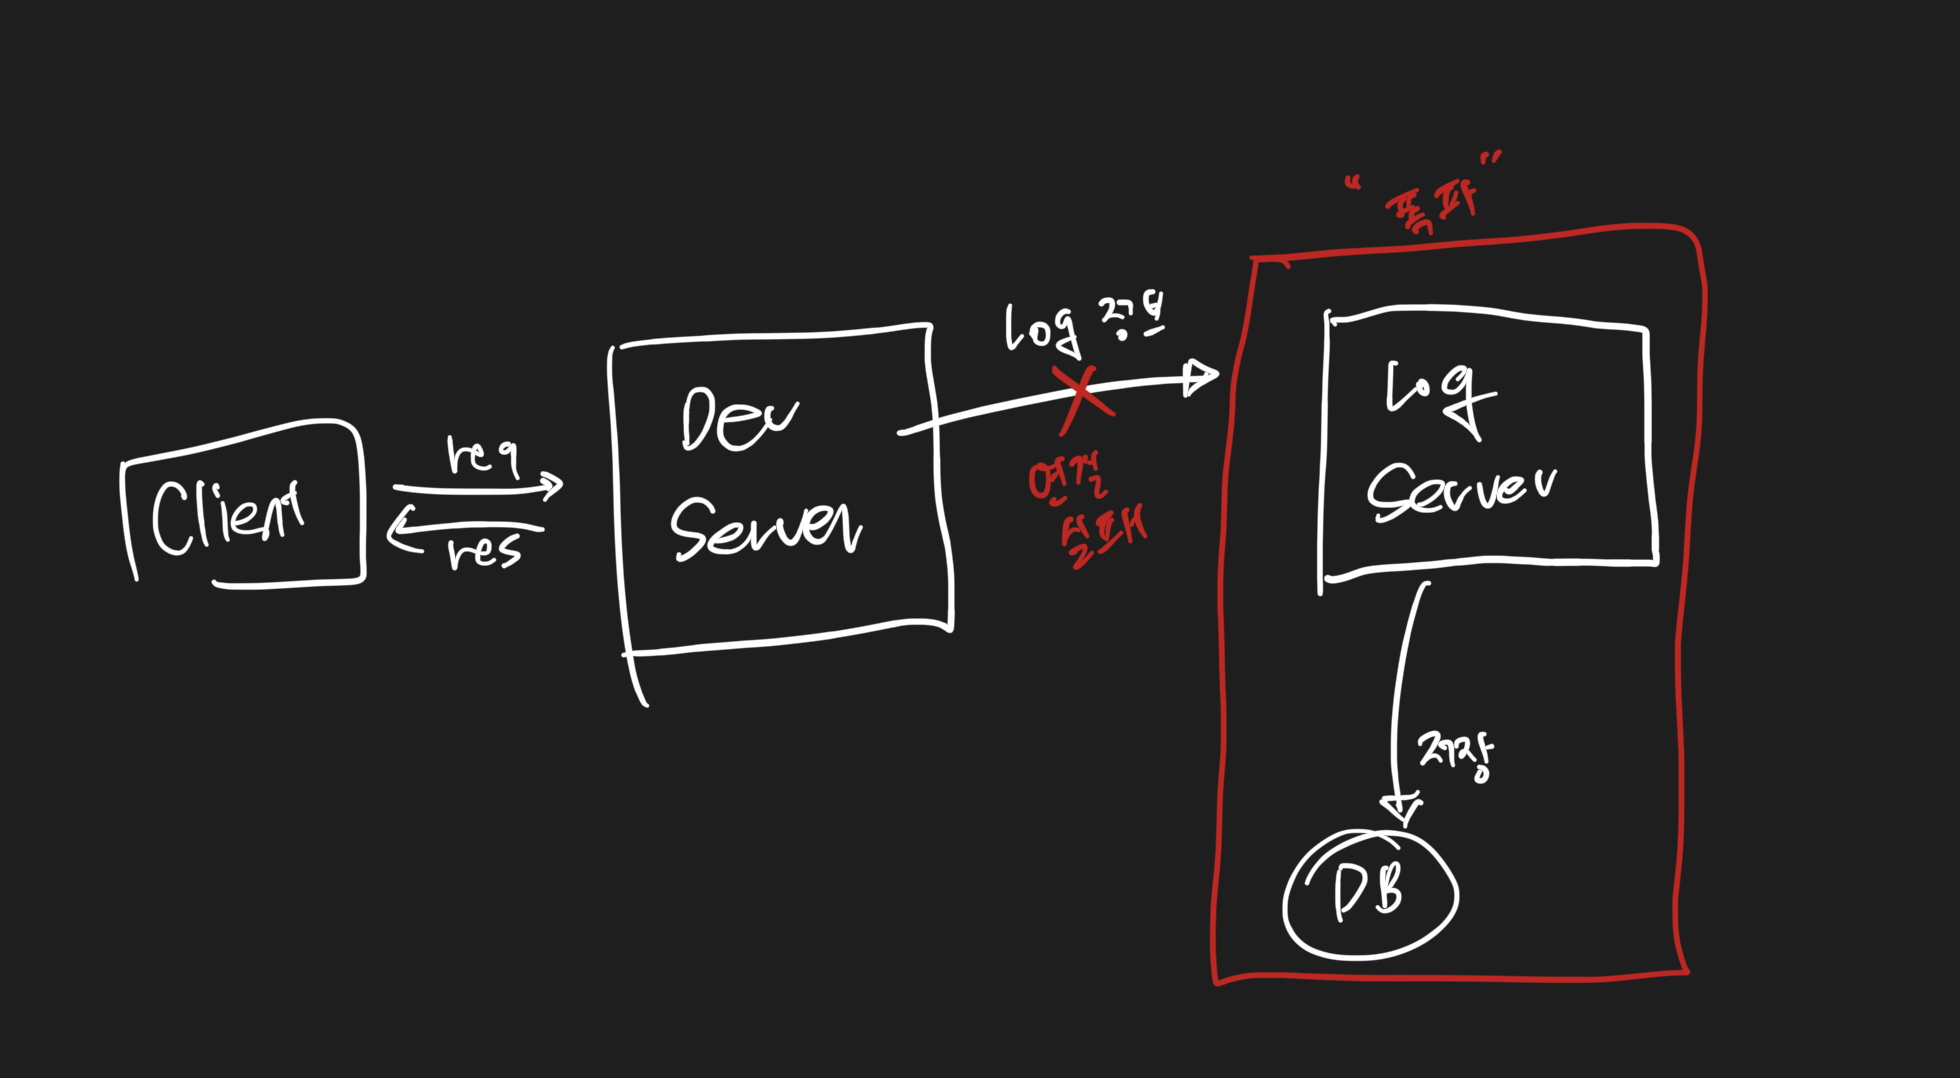 Client
req
res
Dev
Server
Log 정보
연결
실패
"폭파"
Log
Server
저장
DB